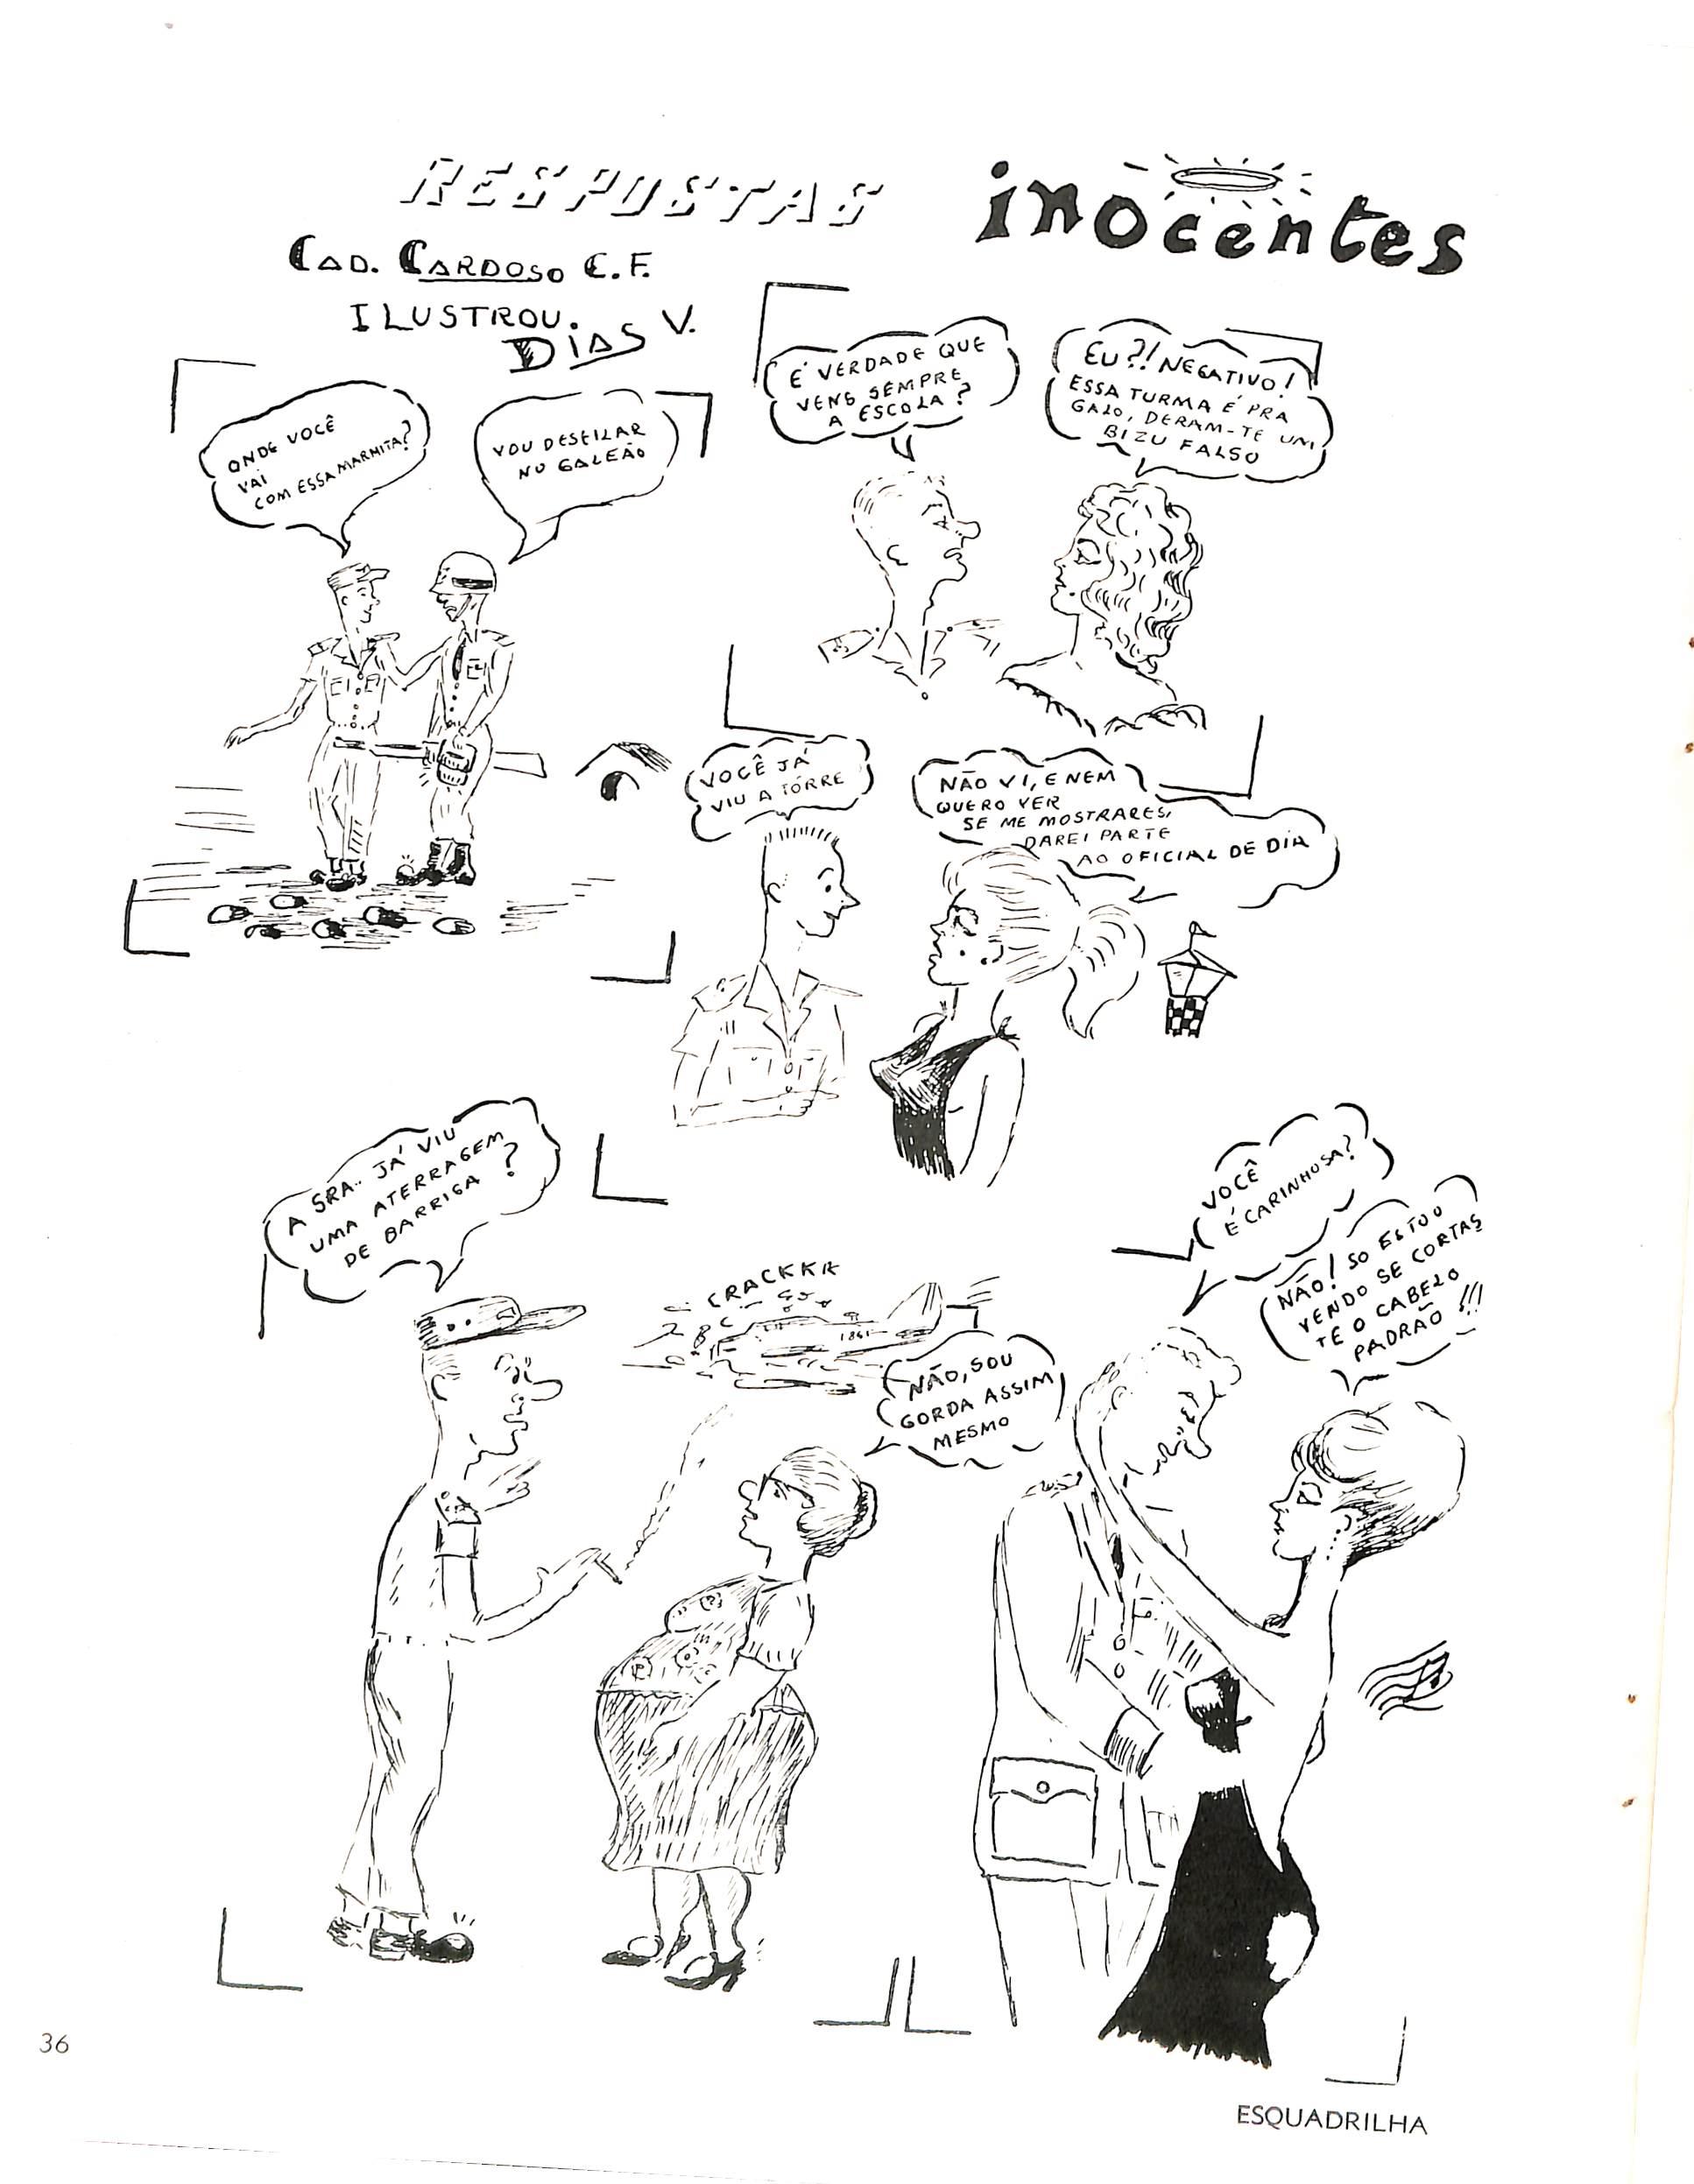 RESPOSTAS inocentes
CAD. CARDOSO C.F.
ILUSTROU.
DIAS V.
ONDE VOCÊ
VAI
COM ESSA MARMITA?
VOU DESFILAR
NO GALEÃO
É VERDADE QUE
VENS SEMPRE
A ESCOLA?
EU?! NEGATIVO!
ESSA TURMA É PRA
GAIO, DERAM-TE UM
BIZU FALSO
VOCÊ JÁ
VIU A TÔRRE
NÃO VI, E NEM
QUERO VER
SE ME MOSTRARES,
DAREI PARTE
AO OFICIAL DE DIA
A SRA.. JÁ VIU
UMA ATERRAGEM
DE BARRIGA?
CRACKKK
1861
NÃO, SOU
GORDA ASSIM
MESMO
VOCÊ
É CARINHOSA?
NÃO! SO ESTOU
VENDO SE CORTAS
TE O CABELO
PADRÃO!!!
36
ESQUADRILHA